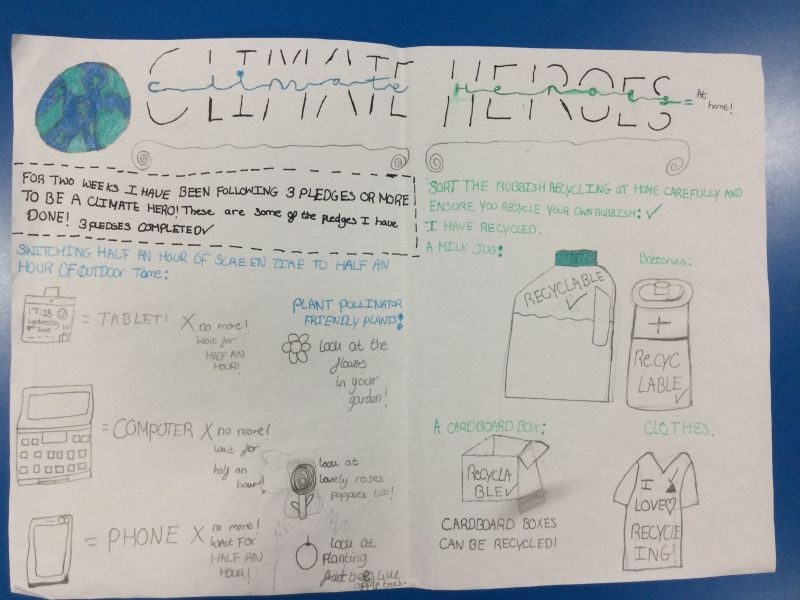 CLIMATE HEROES
climate Heroes = At
home!
FOR TWO WEEKS I HAVE BEEN FOLLOWING 3 PLEDGES OR MORE
TO BE A CLIMATE HERO! These are some of the pledges I have
DONE! 3 PLEDGES COMPLETED ✓
SWITCHING HALF AN HOUR OF SCREEN TIME TO HALF AN
HOUR OF OUTDOOR Time:
17:28
Wednesday
9th June
= TABLET! X no more!
wait for
HALF AN
HOUR!
= COMPUTER X no more!
wait for
half an
hour!
= PHONE X no more!
WAIT FOR
HALF AN
HOUR!
PLANT POLLINATOR
FRIENDLY PLANTS!
Look at the
flowers
in your
garden!
Look at
lovely roses
poppies too!
Look at
Planting
fruit trees like
apple trees.
SORT THE RUBBISH RECYCLING at HOME CAREFULLY AND
ENSURE YOU RECYCLE YOUR OWN RUBBISH: ✓
I HAVE RECYCLED:
A MILK JUG:
RECYCLABLE
✓
Batteries:
+
RECYC
LABLE
✓
A CARDBOARD BOX:
RECYCLA
BLE ✓
CARDBOARD BOXES
CAN BE RECYCLED!
CLOTHES:
I
LOVE♡
RECYCLE
ING!